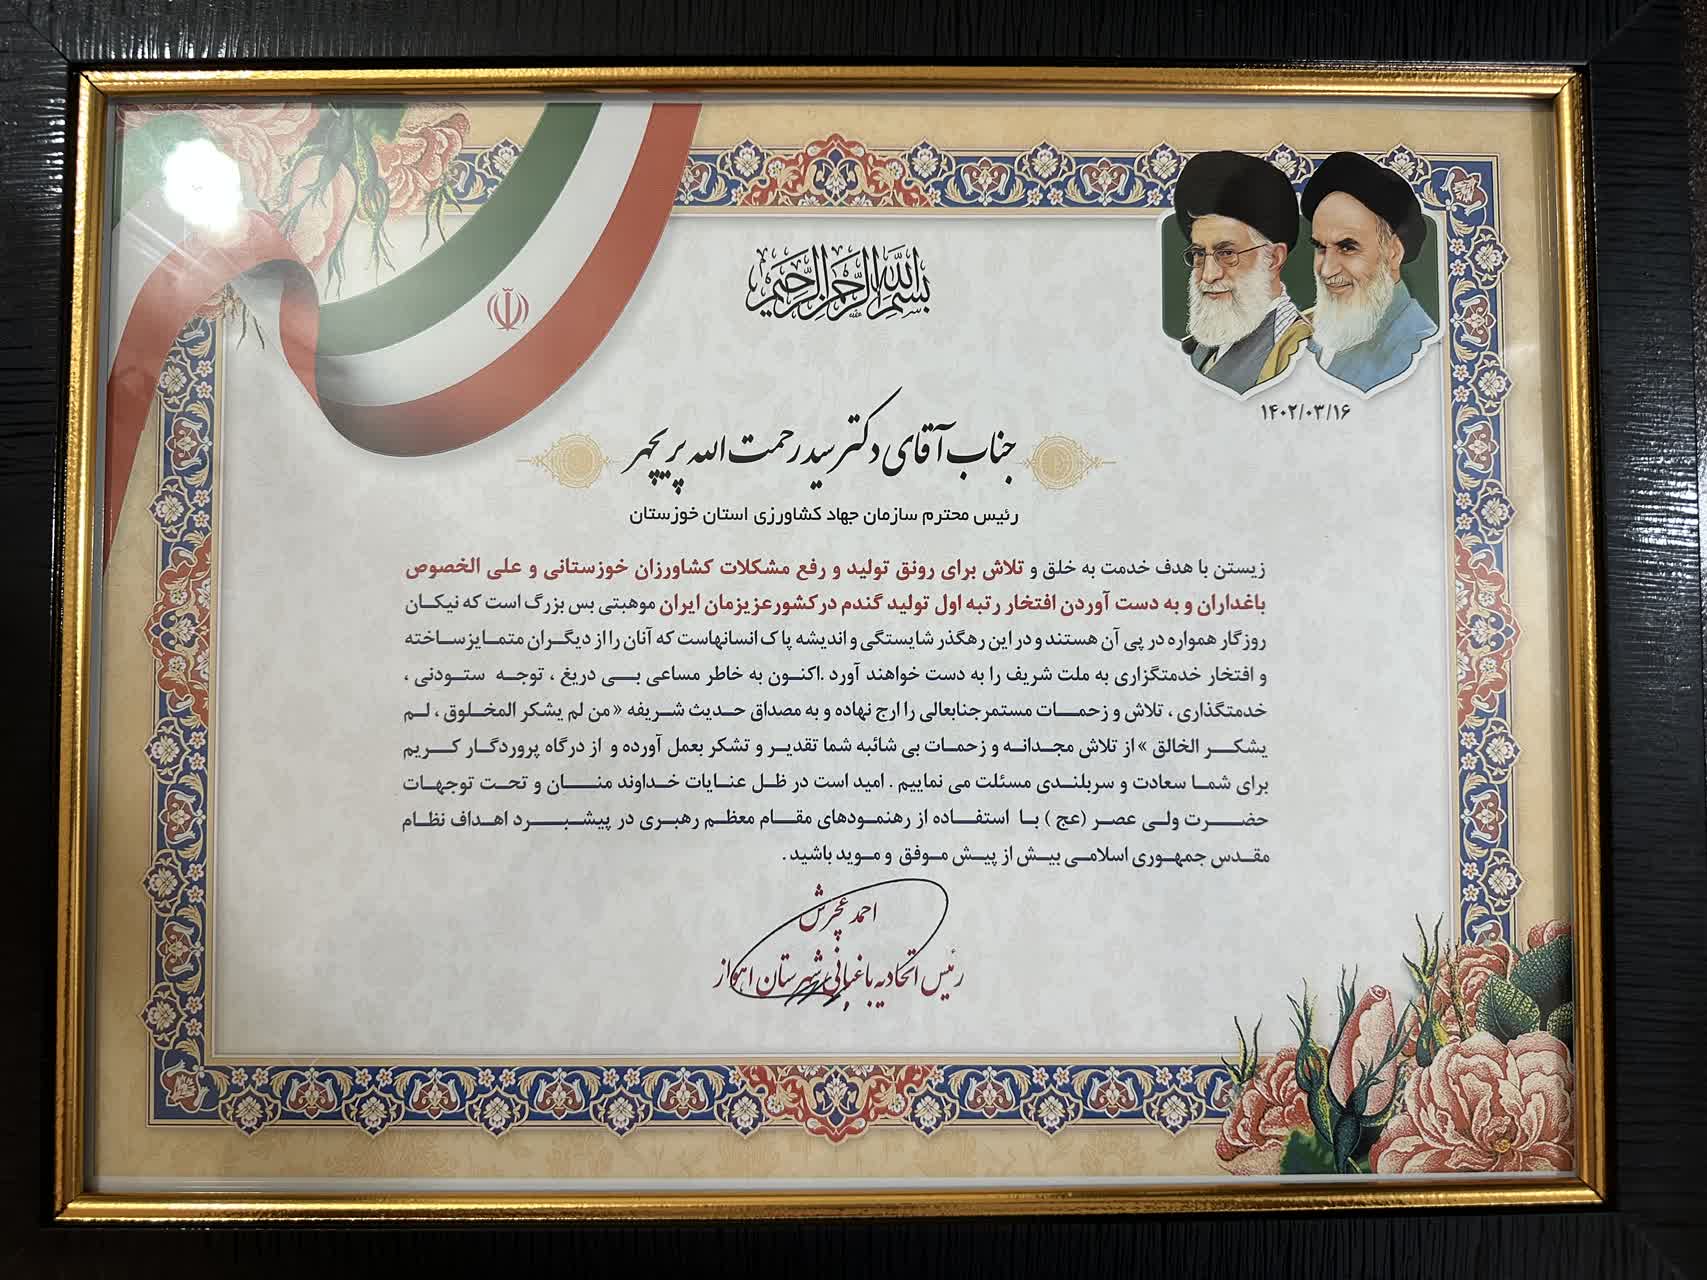 بسم الله الرحمن الرحیم
۱۴۰۲/۰۳/۱۶
جناب آقای دکتر سید رحمت الله پریچهر
رئیس محترم سازمان جهاد کشاورزی استان خوزستان
زیستن با هدف خدمت به خلق و تلاش برای رونق تولید و رفع مشکلات کشاورزان خوزستانی و علی الخصوص
باغداران و به دست آوردن افتخار رتبه اول تولید گندم در کشور عزیزمان ایران موهبتی بس بزرگ است که نیکان
روزگار همواره در پی آن هستند و در این رهگذر شایستگی و اندیشه پاک انسانهاست که آنان را از دیگران متمایز ساخته
و افتخار خدمتگزاری به ملت شریف را به دست خواهند آورد .اکنون به خاطر مساعی بی دریغ ، توجه ستودنی ،
خدمتگذاری ، تلاش و زحمات مستمر جنابعالی را ارج نهاده و به مصداق حدیث شریفه « من لم یشکر المخلوق ، لم
یشکر الخالق » از تلاش مجدانه و زحمات بی شائبه شما تقدیر و تشکر بعمل آورده و از درگاه پروردگار کریم
برای شما سعادت و سربلندی مسئلت می نماییم . امید است در ظل عنایات خداوند منان و تحت توجهات
حضرت ولی عصر (عج ) با استفاده از رهنمودهای مقام معظم رهبری در پیشبرد اهداف نظام
مقدس جمهوری اسلامی بیش از پیش موفق و موید باشید .
احمد عچرش
رئیس اتحادیه باغبانی شهرستان اهواز